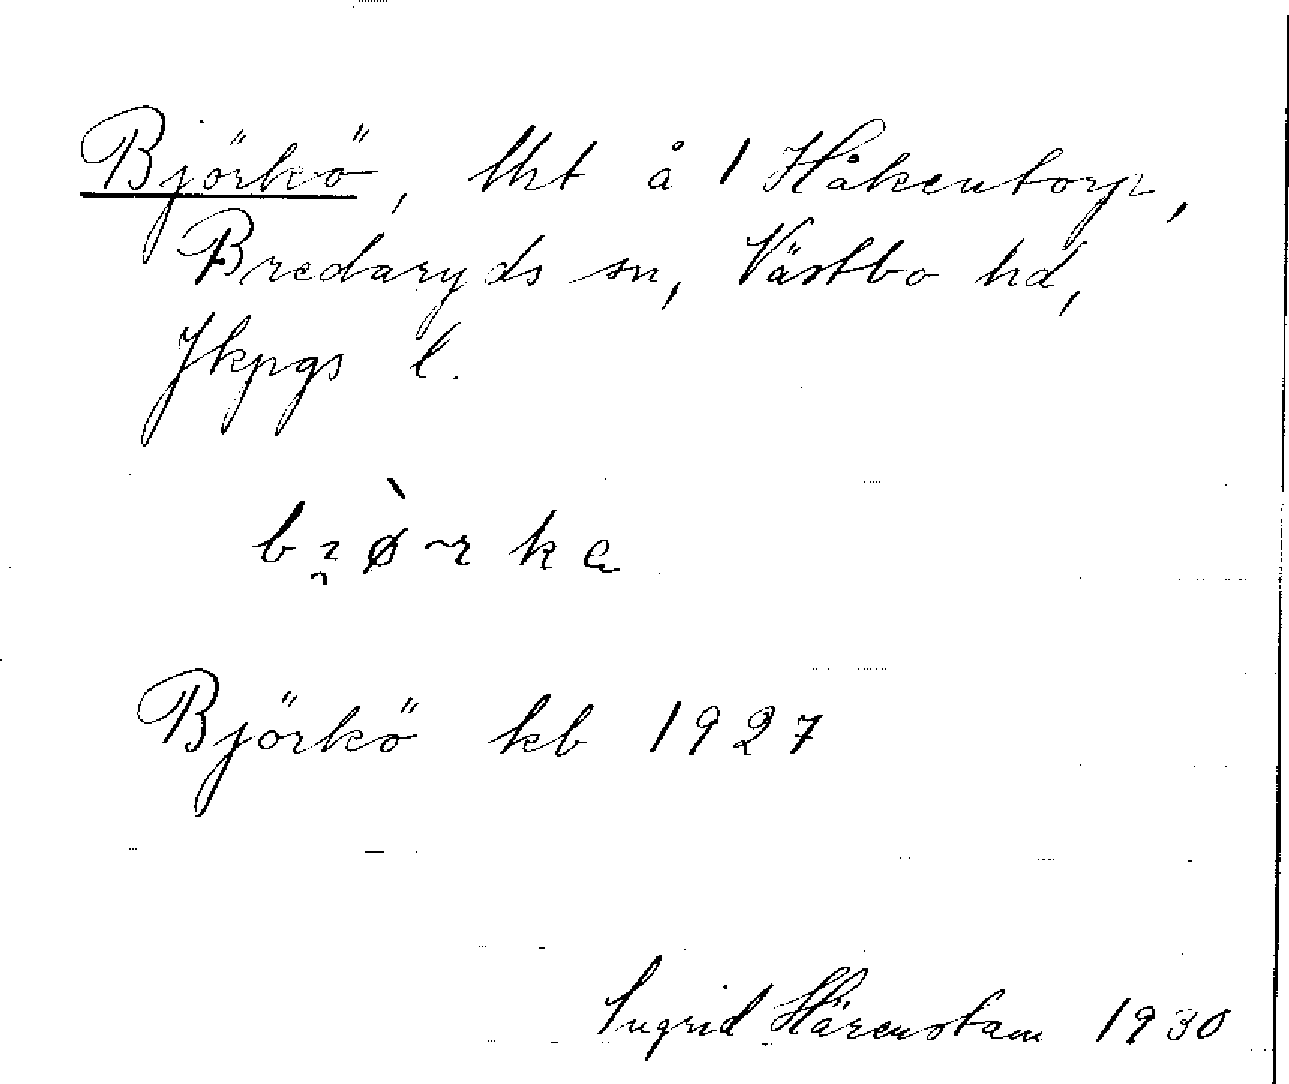 Björkö, lht å 1 Håkentorp,
Bredaryds sn, Västbo hd,
Jkpgs l.
Björkö kb 1927
Ingrid Härenstam 1930